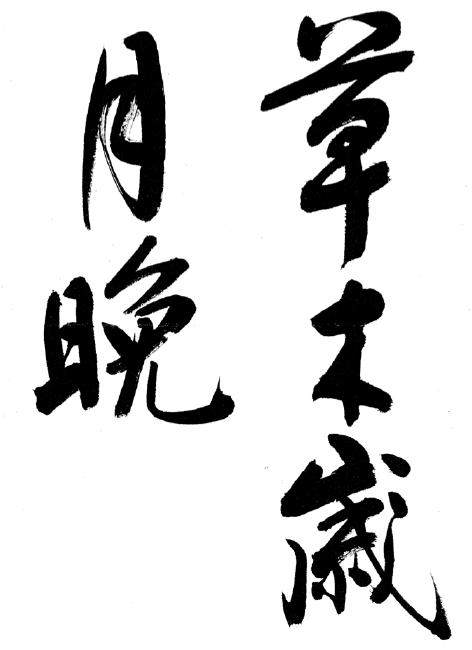 草木歳
月晩